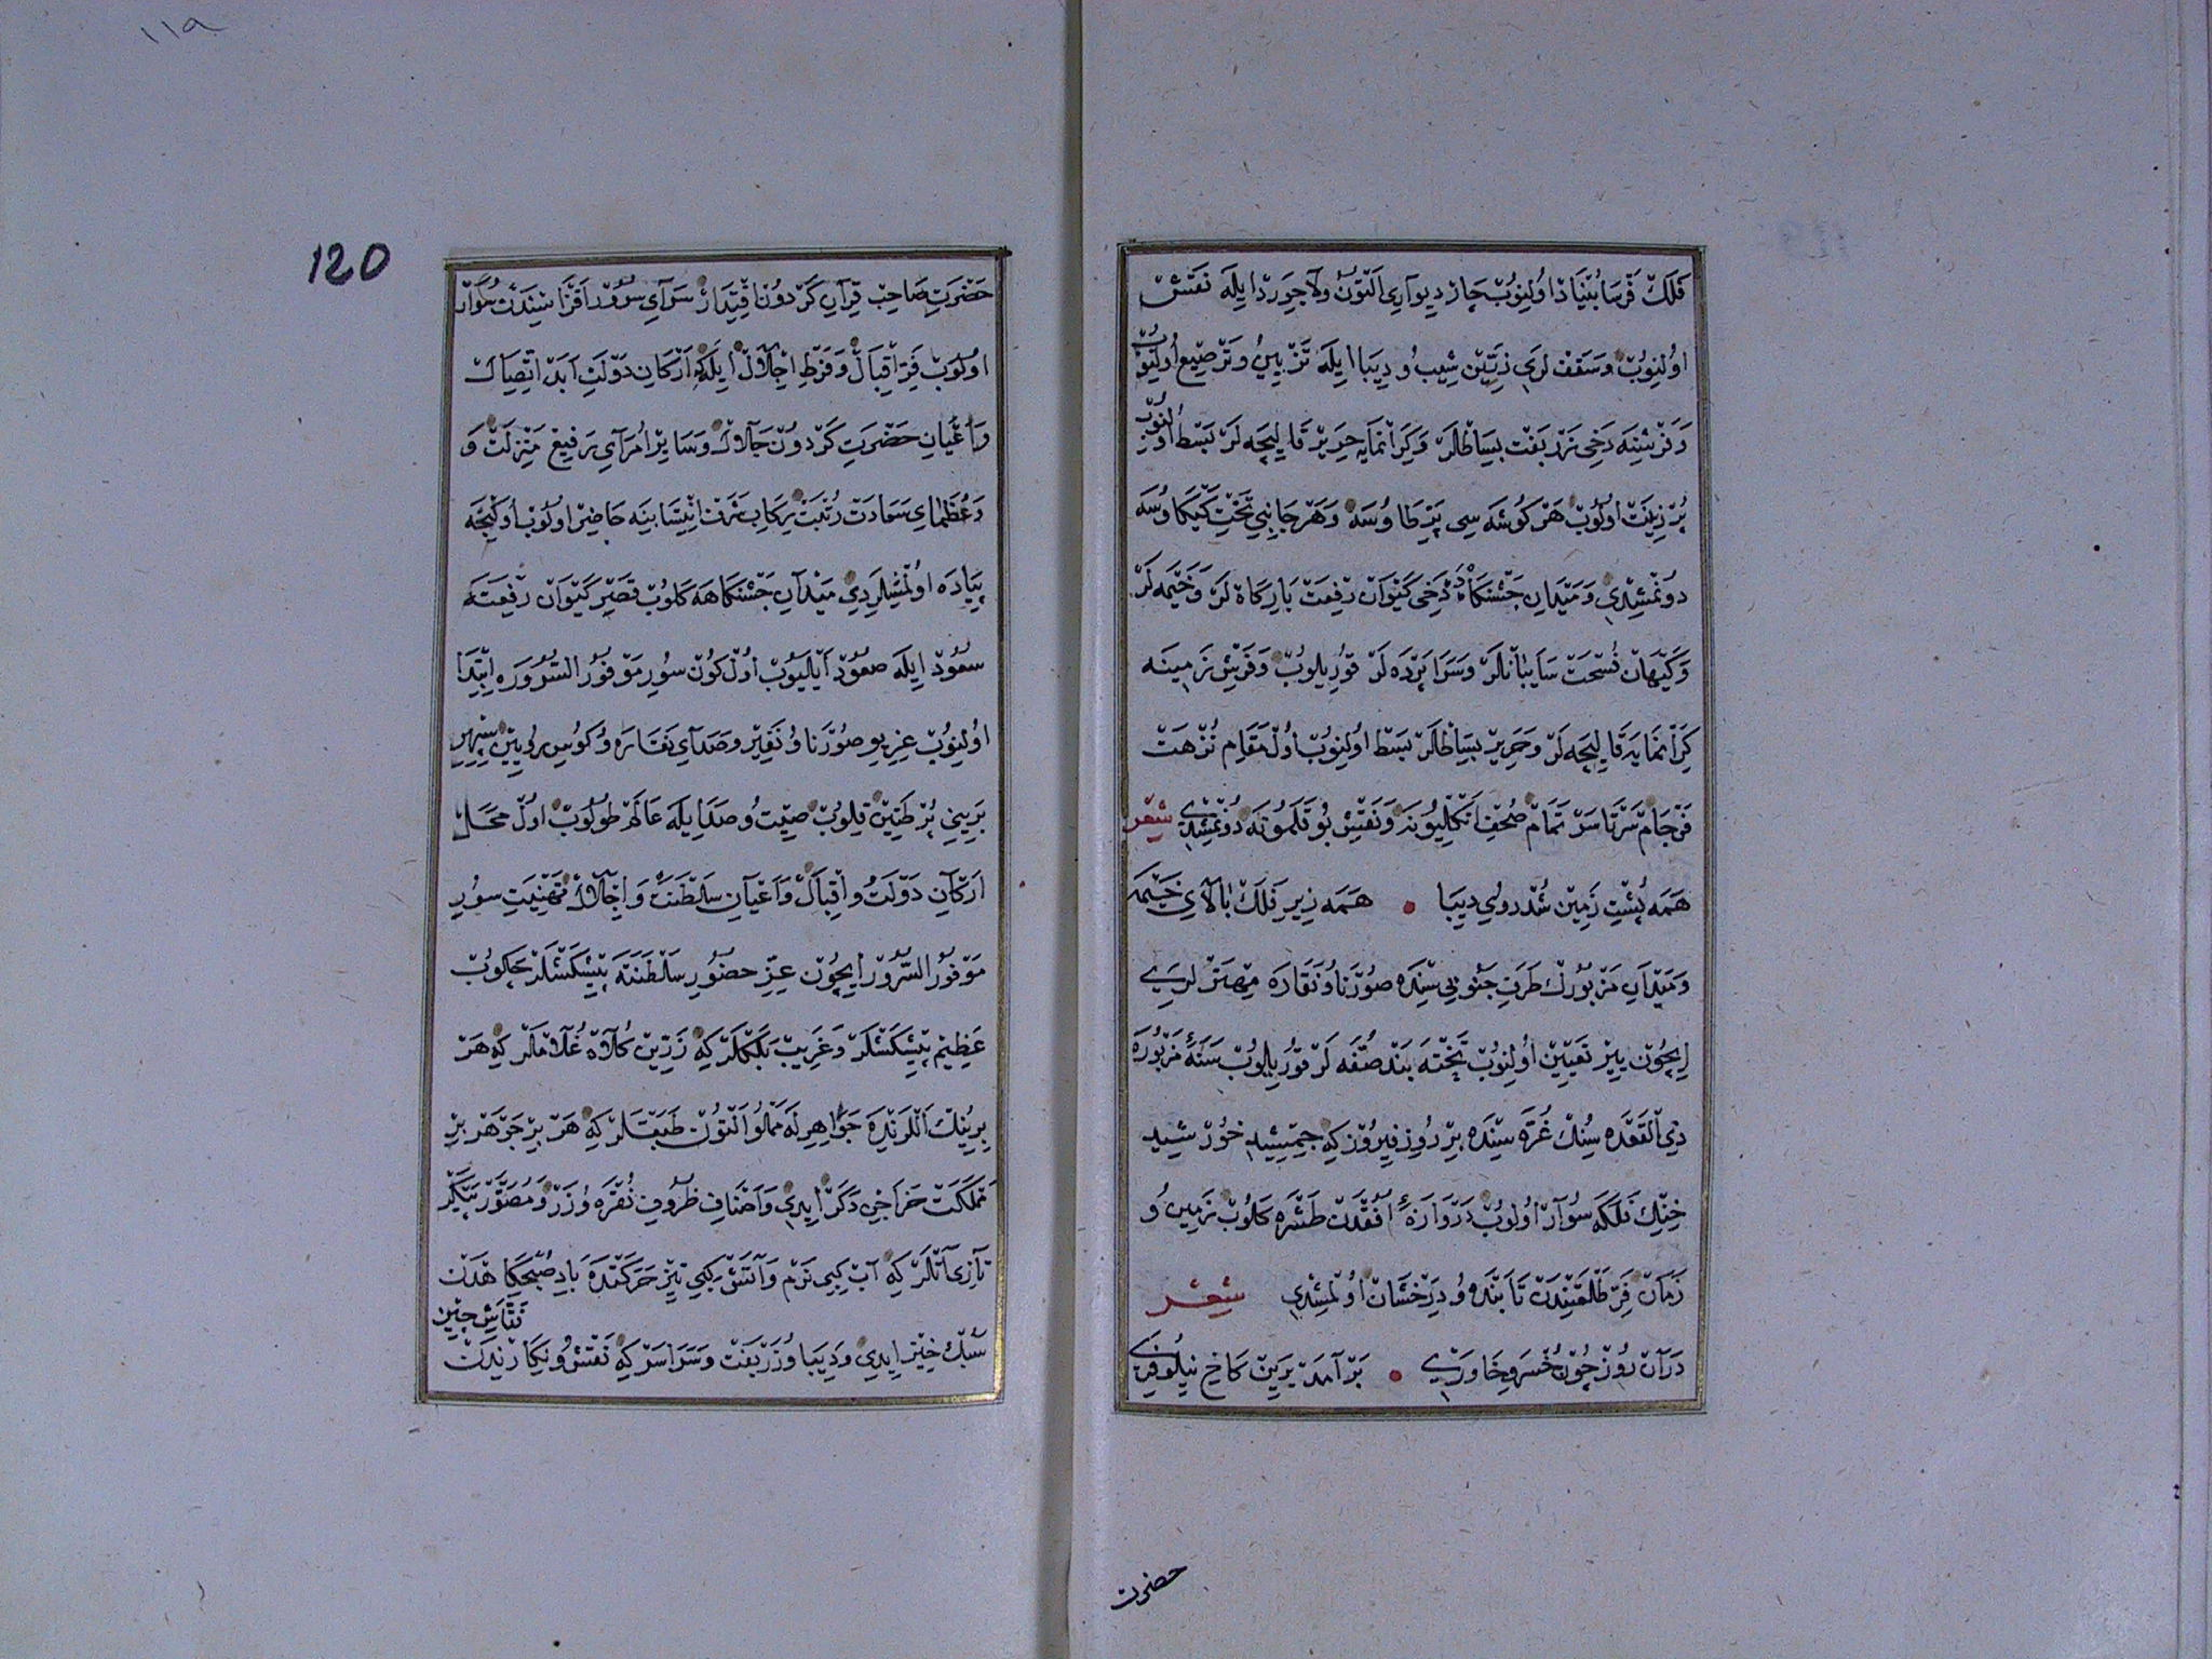 فَلَكْ فَرْسَا بُنْيَادْ اُولِنُوبْ چَارْ دِيوَارِى اَلْتُونْ وَلَاجِوَرْدْ اِيلَهْ نَقْشْ
اوُلِنُوبْ وَسَقْفْ لَرِى زَرِّينْ شِيبُ و دِيبَا اِيلَهْ تَزْيِينُ وَتَرْصِيع اُولِنُوبْ
وَفَرْشِنَه دَخِى زَرْبَفْت بِسَاطْلَرْ وَكِرَانْمَايَه حَرِيرْ قَالِيچَه لَرْ بَسْط اُولُنُوبْ
پُرْزِينَتْ اوُلُوبْ هَرْ كُوشَه سِى پَرِّ طَاوُسَه وَهَرْ جَانِبِى تَخْتِ كَيْكَاوُسَه
دُونْمِشِدِى وَمَيْدَانِ جَشْنكَاهْدَه دَخِى كَيْوَانْ رِفْعَتْ بَارِكَاهْ لَرْ وَخَيْمَه لَرْ
وَكَيْهَانْ فُسْحَتْ سَايَبَانْلَرْ وَسَرَاپَرْدَه لَرْ قُورِيلُوبْ وَفَرْشِ زَمِينَه
كِرَانْمَايَه قَالِيچَه لَرْ وَحَرِيرْ بِسَاطْلَرْ بَسْط اوُلِنُوبْ اُولْ مَقَامِ نُزْهَتْ
فَرْجَامْ سَرْتَاسَرْ تَمَامْ صُحُفِ اَنْكَلْيُونَه وَنَقْشِ بُوقَلَمُونَه دُونْمِشِدِى شِعْر
هَمَه پُشْتِ زَمِينْ شُد رُوىِ دِيبَا • هَمَه زِيرِ فَلَكْ بَالَاىِ خَيْمَه
وَمَيْدَانِ مَزْبُورُكْ طَرَفِ جَنُوبِى سِنْدَه صُورْنَا وُ نَقَارَه مِهْتَرْلَرِى
اِيچُونْ يِيرْ تَعْيِينْ اُولِنُوبْ تَخْتَه بَنْد صُفَّه لَرْ قُورِيلُوبْ سَنَهٔ مَزْبُورَه
ذِى الْقَعْدَه سِنُكْ غُرَّه سِنْدَه بِرْ رُوزِ فِيرُوزْ كِه جِمْشِيدِ خُورْشِيد
خِنْكِ فَلَكَه سُوَارْ اُولُوبْ دَرْوَازَهٔ اُفُقْدَنْ طَشْرَه كَلُوبْ زَمِينُ وُ
زَمَانْ فَرِّ طَلْعَتِنْدَنْ تَابَنْدَه وُ دِرَخْشَانْ اُولْمِشِدِى شِعْر
دَرْآنْ رُوزْ چُونْ خُسْرَوِ خَاوَرِى • بَرْ آمَدْ بَرِينْ كَاخِ نِيلُوفَرِى
حضرت
١١٩
120
حَضْرَتِ صَاحِبْ قِرَانِ كَرْدُونْ اِقْتِدَارْ سَرَاىِ سُرُورْ اَفْزَاسِنْدَنْ سُوَارْ
اوُلُوبْ فَرِّ اِقْبَالْ وَفَرْطِ اِجْلَالْ اِيلَه كِه اَرْكَانِ دَوْلَتِ اَبَدْ اِتِّصَالْ
وَاَعْيَانِ حَضْرَتِ كَرْدُونْ جَلَالْ وَسَايِرْ اُمَرَآىِ رَفِيعْ مَنْزِلَتْ وَ
وَعُظَمَاىِ سَعَادَتْ رُتْبَتْ رِكَابِ شَرَفْ اِنْتِسَابِنَه حَاضِرْ اوُلُوبْ اوُكِنْجَه
پِيَادَه اوُلْمِشْلَرِدِى مَيْدَانِ جَشْنكَاهَه كَلُوبْ قَصْرِ كَيْوَانْ رِفْعَتَه
سُعُودْ اِيلَه صُعُودْ اَيْلِيُوبْ اُولْ كُونْ سُورِ مَوْفُورُ السُّرُورَه اِبْتِدَا
اوُلِنُوبْ غِرِيوِ صُورْنَا وُ نَفِيرْ وَصَدَاىِ نَقَارَه وُ كُوسِ رُويِينْ سِپِهْرِ
بَرِينِى پُرْ طَنِينْ قِلُوبْ صِيتُ وُ صَدَا اِيلَه عَالَمْ طُولُوبْ اوُلْ مَحَلْ
اَرْكَانِ دَوْلَتُ و اِقْبَالْ وَاَعْيَانِ سَلْطَنَتْ وَ اِجْلَالْ تَهْنِيَتِ سُورِ
مَوْفُورُ السُّرُورْ اِيچُونْ عِزِّ حُضُورِ سَلْطَنَتَه پِيشْكَشْلَرْ چَكُوبْ
عَظِيمْ پِيشْكَشْلَرْ وَغَرِيبْ بَلَكْلَرْ كِه زَرِّينْ كُلَاهْ غُلَامْلَرْ كِه هَرْ
بِرِينُكْ اَللَرِنْدَه جَوَاهِرْلَه مَمْلُو اَلْتُونْ طَبَقْلَرْ كِه هَرْ بِرْ جَوْهَرْ بِرْ
مَمْلَكَتْ خَرَاجِى دَكَرْ اِيدِى وَاَصْنَافِ ظُرُوفِ نُقْرَه وُ زَرْ وَمُصَوَّرْ پَيْكَرْ
تَازِى آتْلَرْ كِه آبْ كِبِى نَرْم وَآتَشْ كِبِى تِيزْ حَرَكَتْدَه بَادِ صُبْحْكَاهْدَنْ
سُبُكْ خِيزْ اِيدِى وَدِيبَا وُ زَرْبَفْت وَسَرَاسَرْ كِه نَقْشُ وُ نِكَارِنْدَنْ
نَقَّاشِ چِينْ